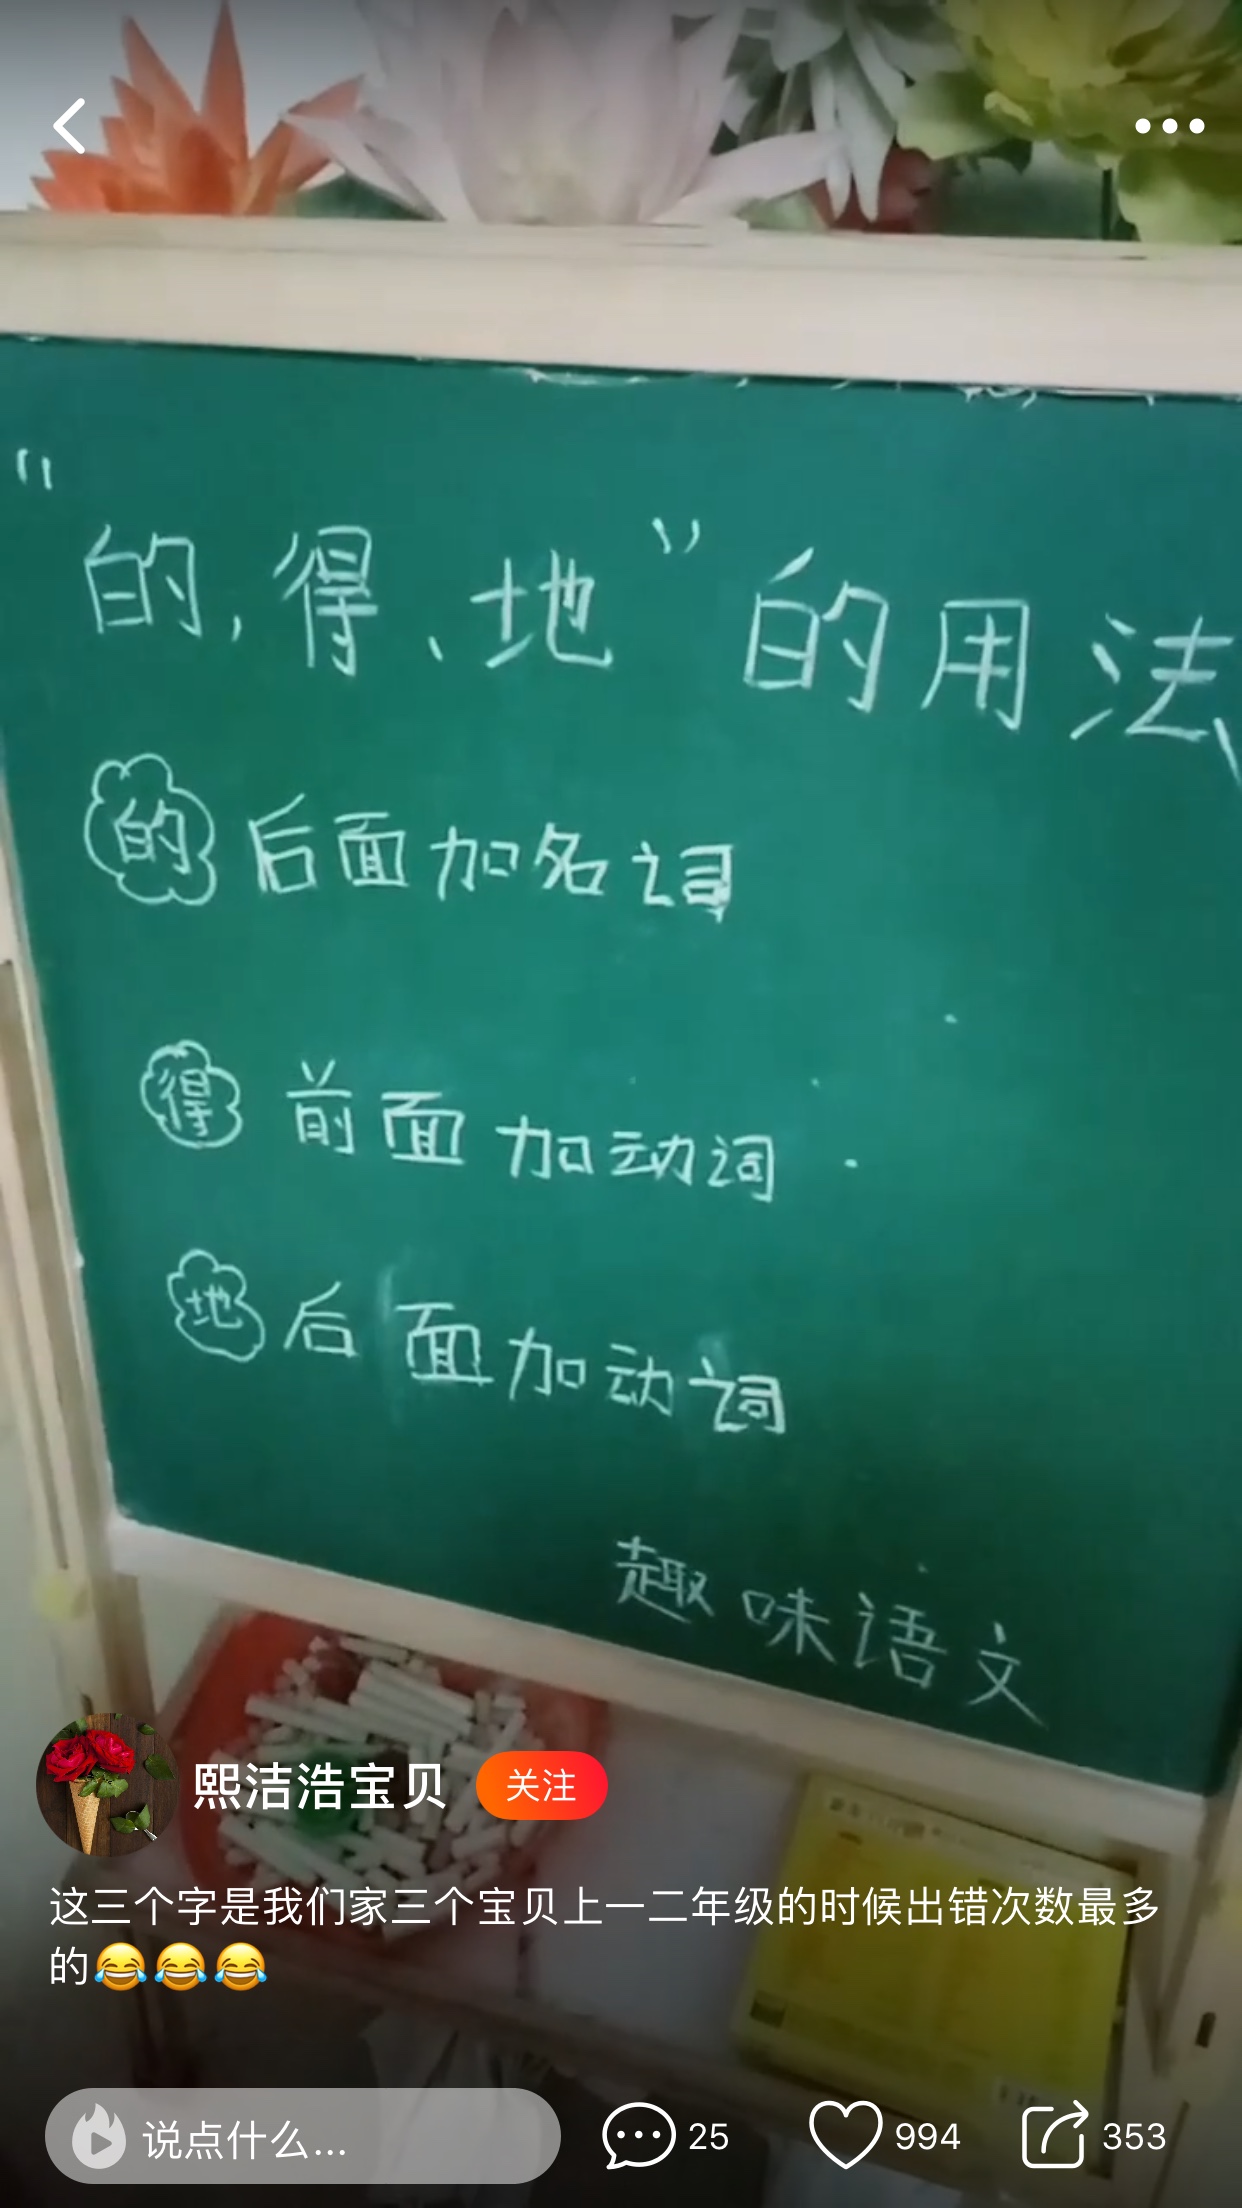 “的,得、地”的用法
的 后面加名词
得 前面加动词
地 后面加动词
趣味语文
熙洁浩宝贝 关注
这三个字是我们家三个宝贝上一二年级的时候出错次数最多
的😂😂😂
说点什么... 25 994 353